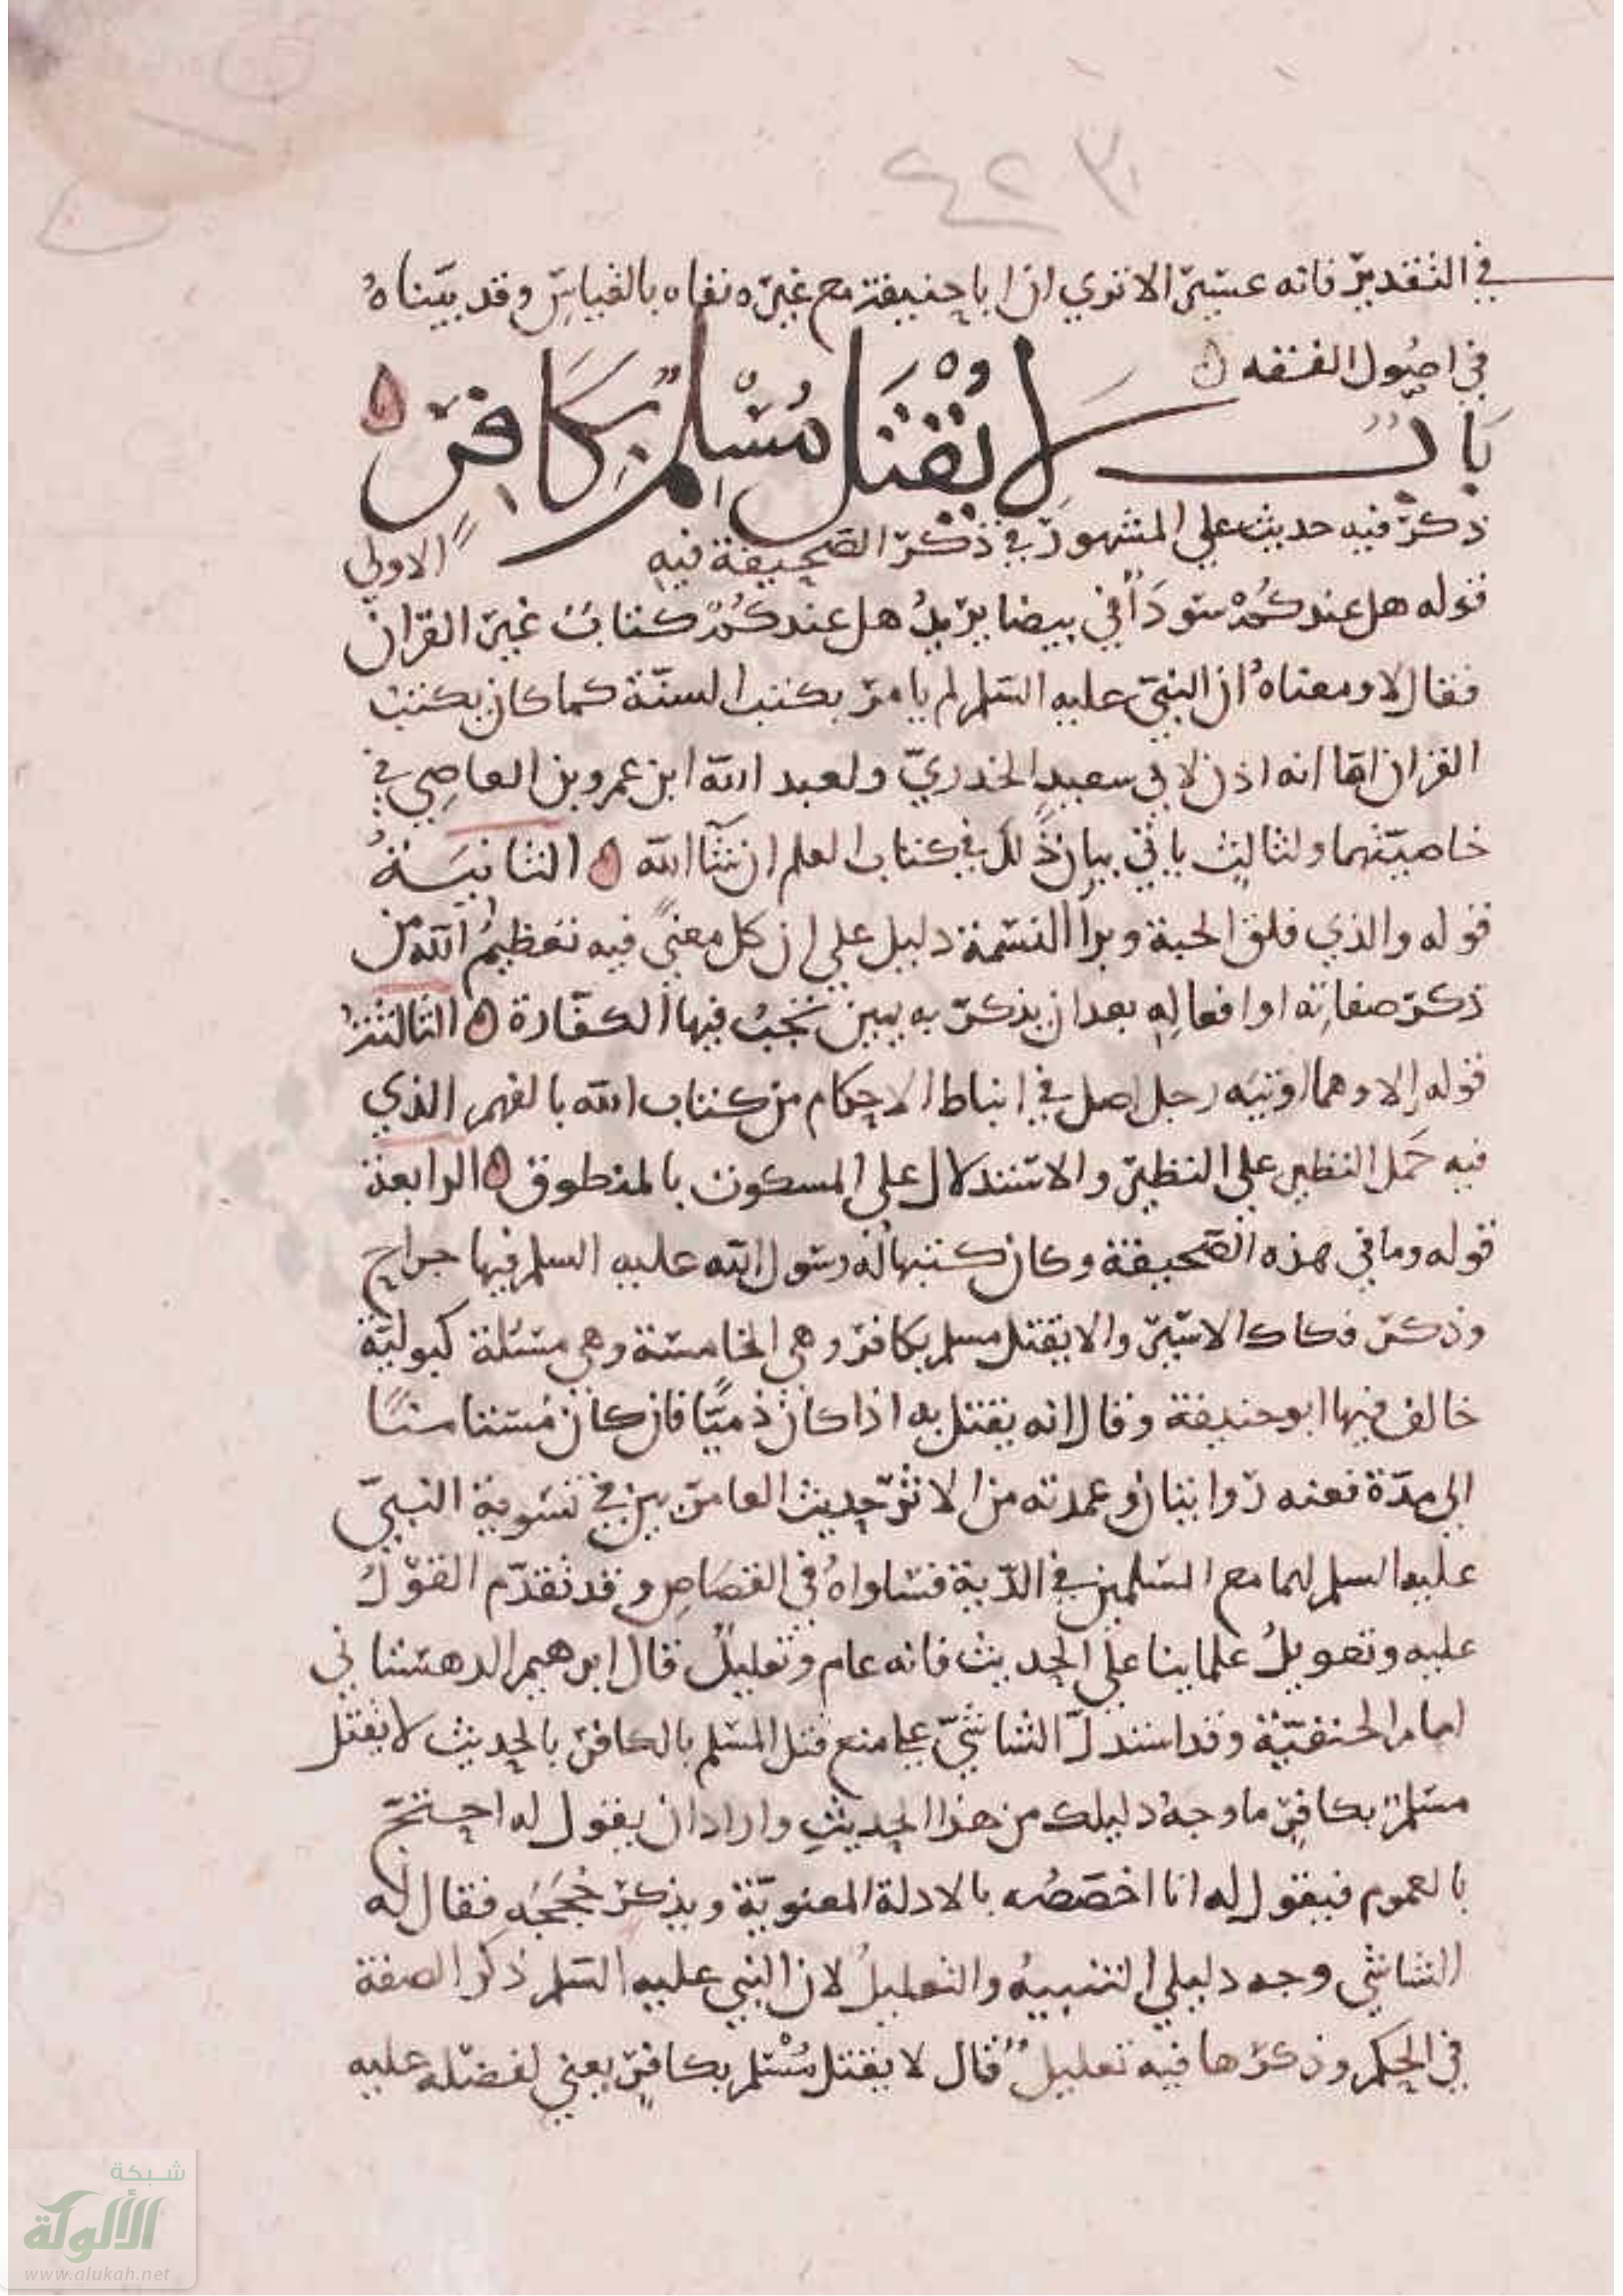 ٤٢٣
في التقدير فانه عسير الا تري ان ابا حنيفة مع غيره نفاه بالقياس وقد بيناه
في اصول الفقه
باب لا يقتل مسلم بكافر
ذكر فيه حديث علي المشهور في ذكر الصحيفة فيه الاولي
قوله هل عندكم سودا في بيضا يريد هل عندكم كتاب غير القران
فقال لا ومعناه ان النبي عليه السلم لم يامر بكتب السنة كما كان يكتب
القران اما انه اذن لابي سعيد الخدري ولعبد الله ابن عمرو بن العاصي في
خاصيتهما ولثالث ياتي بيان ذلك في كتاب العلم ان شا الله الثانية
قوله والذي فلق الحبة وبرا النسمة دليل علي ان كل معني فيه تعظيم الله من
ذكر صفاته او افعاله بعد ان يذكر به يمين تجب فيها الكفارة الثالثة
قوله إلا وهما اوتيه رجل اصل في انباط الاحكام من كتاب الله بالفهم الذي
فيه حمل النظير علي النظير والاستدلال علي المسكوت بالمنطوق الرابعة
قوله وما في هذه الصحيفة وكان كتبها له رسول الله عليه السلم فيها جراح
وذكر فكاك الاسير والا يقتل مسلم بكافر وهي الخامسة وهي مسئلة كبولية
خالف فيها ابو حنيفة وقال انه يقتل به اذا كان ذميا فان كان مستامنا
الي مدة فعنه روايتان وعمدته من الاثر حديث العامريين في تسوية النبي
عليه السلم لهما مع المسلمين في الدية فساواه في القصاص وقد تقدم القول
عليه وتعويل علماينا علي الحديث فانه عام وتعليل قال ابرهيم الدهستاني
امام الحنفية وقد استدل الشاشي علي منع قتل المسلم بالكافر بالحديث لا يقتل
مسلم بكافر ما وجه دليلك من هذا الحديث واراد ان يقول له احتج
بالعموم فيقول له انا اخصصه بالادلة المعنوية ويذكر حججه فقال له
الشاشي وجه دليلي التنبيه والتعليل لان النبي عليه السلم ذكر الصفة
في الحكم وذكرها فيه تعليل قال لا يقتل مسلم بكافر يعني لفضله عليه
شبكة
الألوكة
www.alukah.net